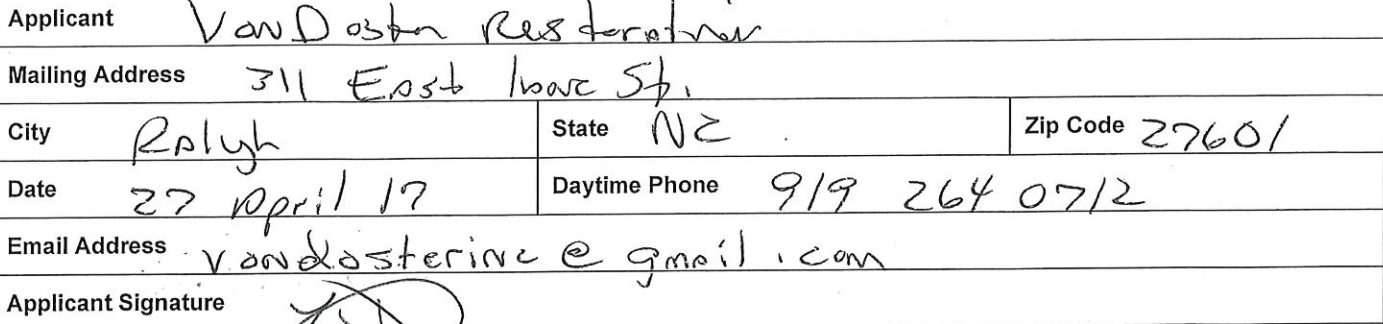 Applicant VanDoster Restoration
Mailing Address 311 East Lane St.
City Ralgh State NC Zip Code 27601
Date 27 April 17 Daytime Phone 919 264 0712
Email Address vandosterinc@gmail.com
Applicant Signature